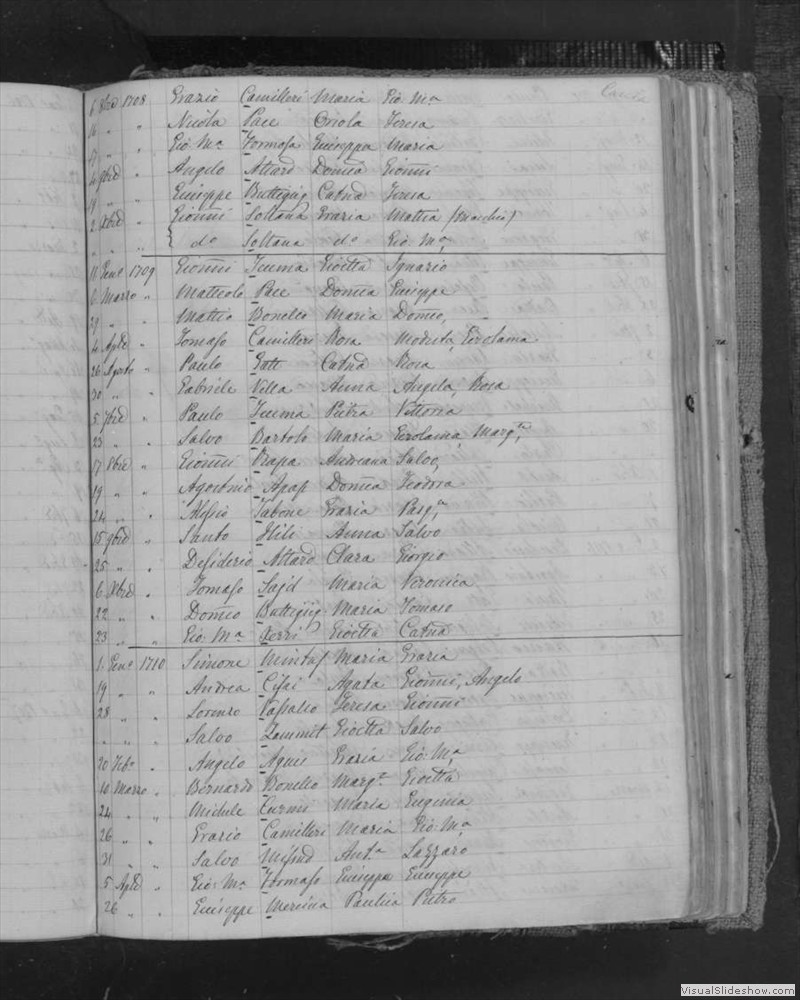 6 8bre 1708 Grazio Camilleri Maria Gio: Ma
16 " " Nicola Pace Oriola Teresa
" " Gio: Ma Formosa Giuseppa Maria
4 9bre " Angelo Attard Domca Gionni
19 " " Giuseppe Buttigieg Catna Teresa
2 Xbre " Gionni Soltana Grazia Mattia (Maschio)
" " " { do Soltana do Gio: Ma
11 Genn 1709 Gionni Teuma Gioetta Ignazio
Marzo " Matteolo Pace Domca Giuseppe
29 " " Mattia Bonello Maria Domco,
4 Agle " Tomaso Camilleri Rosa Modesta, Gerolama
26 Agosto " Paulo Gatt Catna Rosa
30 " " Gabriele Vella Anna Angela, Rosa
5 7bre " Paulo Teuma Pietra Vittoria
23 " " Salvo Bartolo Maria Gerolama, Margta
17 8bre " Gionni Rapa Andreana Salvo,
19 " " Agostino Apap Domca Teodora
24 " " Alessio Tabone Grazia Pasqa
15 9bre " Santo Hili Anna Salvo
25 " " Desiderio Attard Clara Giorgio
6 Xbre " Tomaso Said Maria Veronica
22 " " Domco Buttigieg Maria Tomaso
23 " " Gio: Ma Xerri Gioetta Catna
1 Genn 1710 Simone Mintuf Maria Grazia
19 " " Andrea Cifai Agata Gionni, Angelo
28 " " Lorenzo Vassallo Teresa Gionni
" " " Salvo Zammit Gioetta Salvo
20 Febo " Angelo Agius Grazia Gio: Ma
10 Marzo " Bernardo Bonello Margta Gioetta
24 " " Michele Curmi Maria Eugenia
26 " " Grazio Camilleri Maria Gio: Ma
31 " " Salvo Mifsud Anta Lazzaro
5 Agle " Gio: Ma Formosa Giuseppa Giuseppe
26 " " Giuseppe Mercieca Paulica Pietro
VisualSlideshow.com